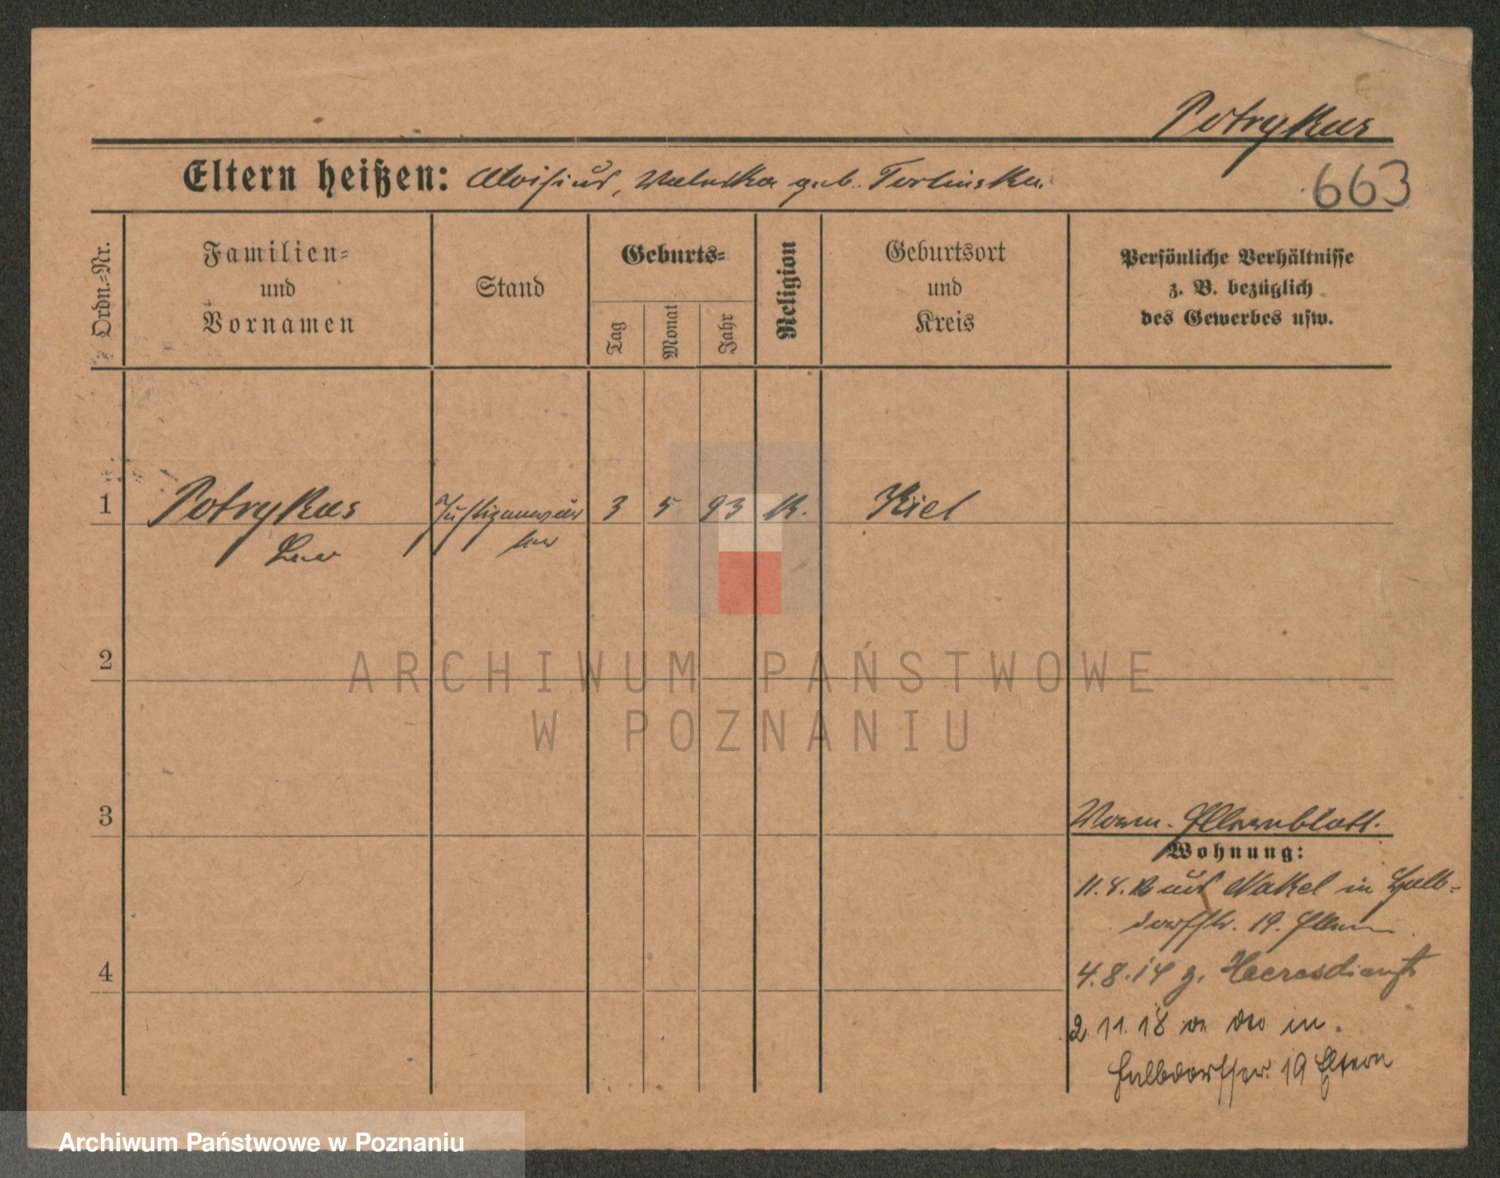 Potrykus
663
Eltern heißen: Aloisius, Valeska geb. Torlinska.
Ordn.-Nr.
Familien-
und
Vornamen
Stand
Geburts-
Tag
Monat
Jahr
Religion
Geburtsort
und
Kreis
Persönliche Verhältnisse
z. B. bezüglich
des Gewerbes usw.
1 Potrykus Justizanwär 3 5 93 K. Kiel
Leo ter
2
ARCHIWUM PAŃSTWOWE
W POZNANIU
3
Vorm. Elternblatt.
Wohnung:
11.8. aus Nakel in Halb-
dorfstr. 19. Eltern
4
4.8.14 z. Heeresdienst
2 11. 18 in
Halbdorfstr. 19 Eltern
Archiwum Państwowe w Poznaniu